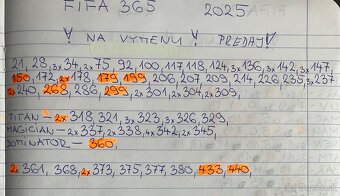 FIFA 365 2025
! NA VÝMENU / PREDAJ !
21, 28, 3x34, 2x75, 92, 100, 117, 118, 124, 3x136, 3x142, 3x147,
150, 172, 2x178, 179, 199, 206, 207, 209, 214, 226, 235, 3x237
2x240, 268, 286, 299, 2x301, 2x304, 2x309,
TITAN - 2x318, 321, 3x323, 3x326, 329,
MAGICIAN - 2x337, 2x338, 4x342, 2x345,
DOMINATOR - 360,
2x361, 368, 2x373, 375, 377, 380, 433, 440,